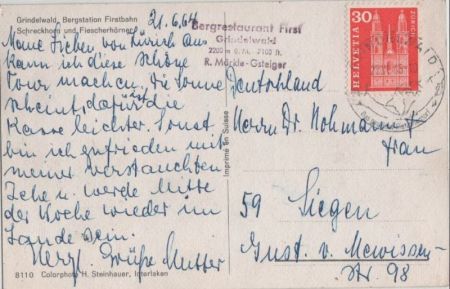 Grindelwald, Bergstation Firstbahn
Schreckhorn und Fiescherhörner
21.6.64
Meine Lieben von Zürich aus
kann ich diese schöne
Tour machen. Die Sonne
scheint, dafür die
Kasse leichter. Sonst
bin ich zufrieden mit
meiner verstauchten
Zehe u. werde Mitte
der Woche wieder im
Lande sein.
Herzl. Grüße Mutter
8110 Colorphoto H. Steinhauer, Interlaken
Imprimé en Suisse
Bergrestaurant First
Grindelwald
2200 m ü. M. 7100 ft.
R. Märkle-Gsteiger
30
HELVETIA
ZÜRICH
Deutschland
Herrn Dr. Nohmann
Frau
59 Siegen
Gust. v. Mevissen-
Str. 98